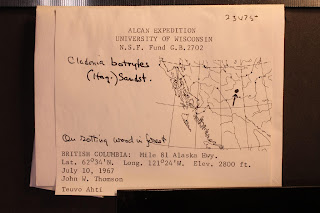 23475
ALCAN EXPEDITION
UNIVERSITY OF WISCONSIN
N.S.F. Fund G.B.7702
Cladonia botrytes
(Hag.) Sandst.
On rotting wood in forest
BRITISH COLUMBIA: Mile 81 Alaska Hwy.
Lat. 62°34'N. Long. 121°24'W. Elev. 2800 ft.
July 10, 1967
John W. Thomson
Teuvo Ahti